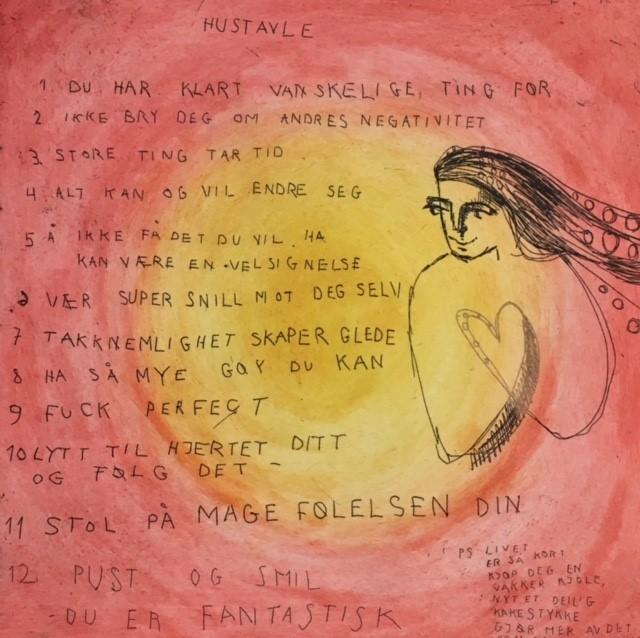 HUSTAVLE
1. DU HAR KLART VANSKELIGE, TING FØR
2 IKKE BRY DEG OM ANDRES NEGATIVITET
3. STORE TING TAR TID
4 ALT KAN OG VIL ENDRE SEG
5 Å IKKE FÅ DET DU VIL. HA
KAN VÆRE EN VELSIGNELSE
6 VÆR SUPER SNILL MOT DEG SELV
7 TAKKNEMLIGHET SKAPER GLEDE
8 HA SÅ MYE GØY DU KAN
9 FUCK PERFECT
10 LYTT TIL HJERTET DITT
OG FØLG DET -
11 STOL PÅ MAGE FØLELSEN DIN
12 PUST OG SMIL
- DU ER FANTASTISK
PS LIVET
ER SÅ KORT
KJØP DEG EN
VAKKER KJOLE,
NYT ET DEILIG
KAKESTYKKE
GJØR MER AV DET